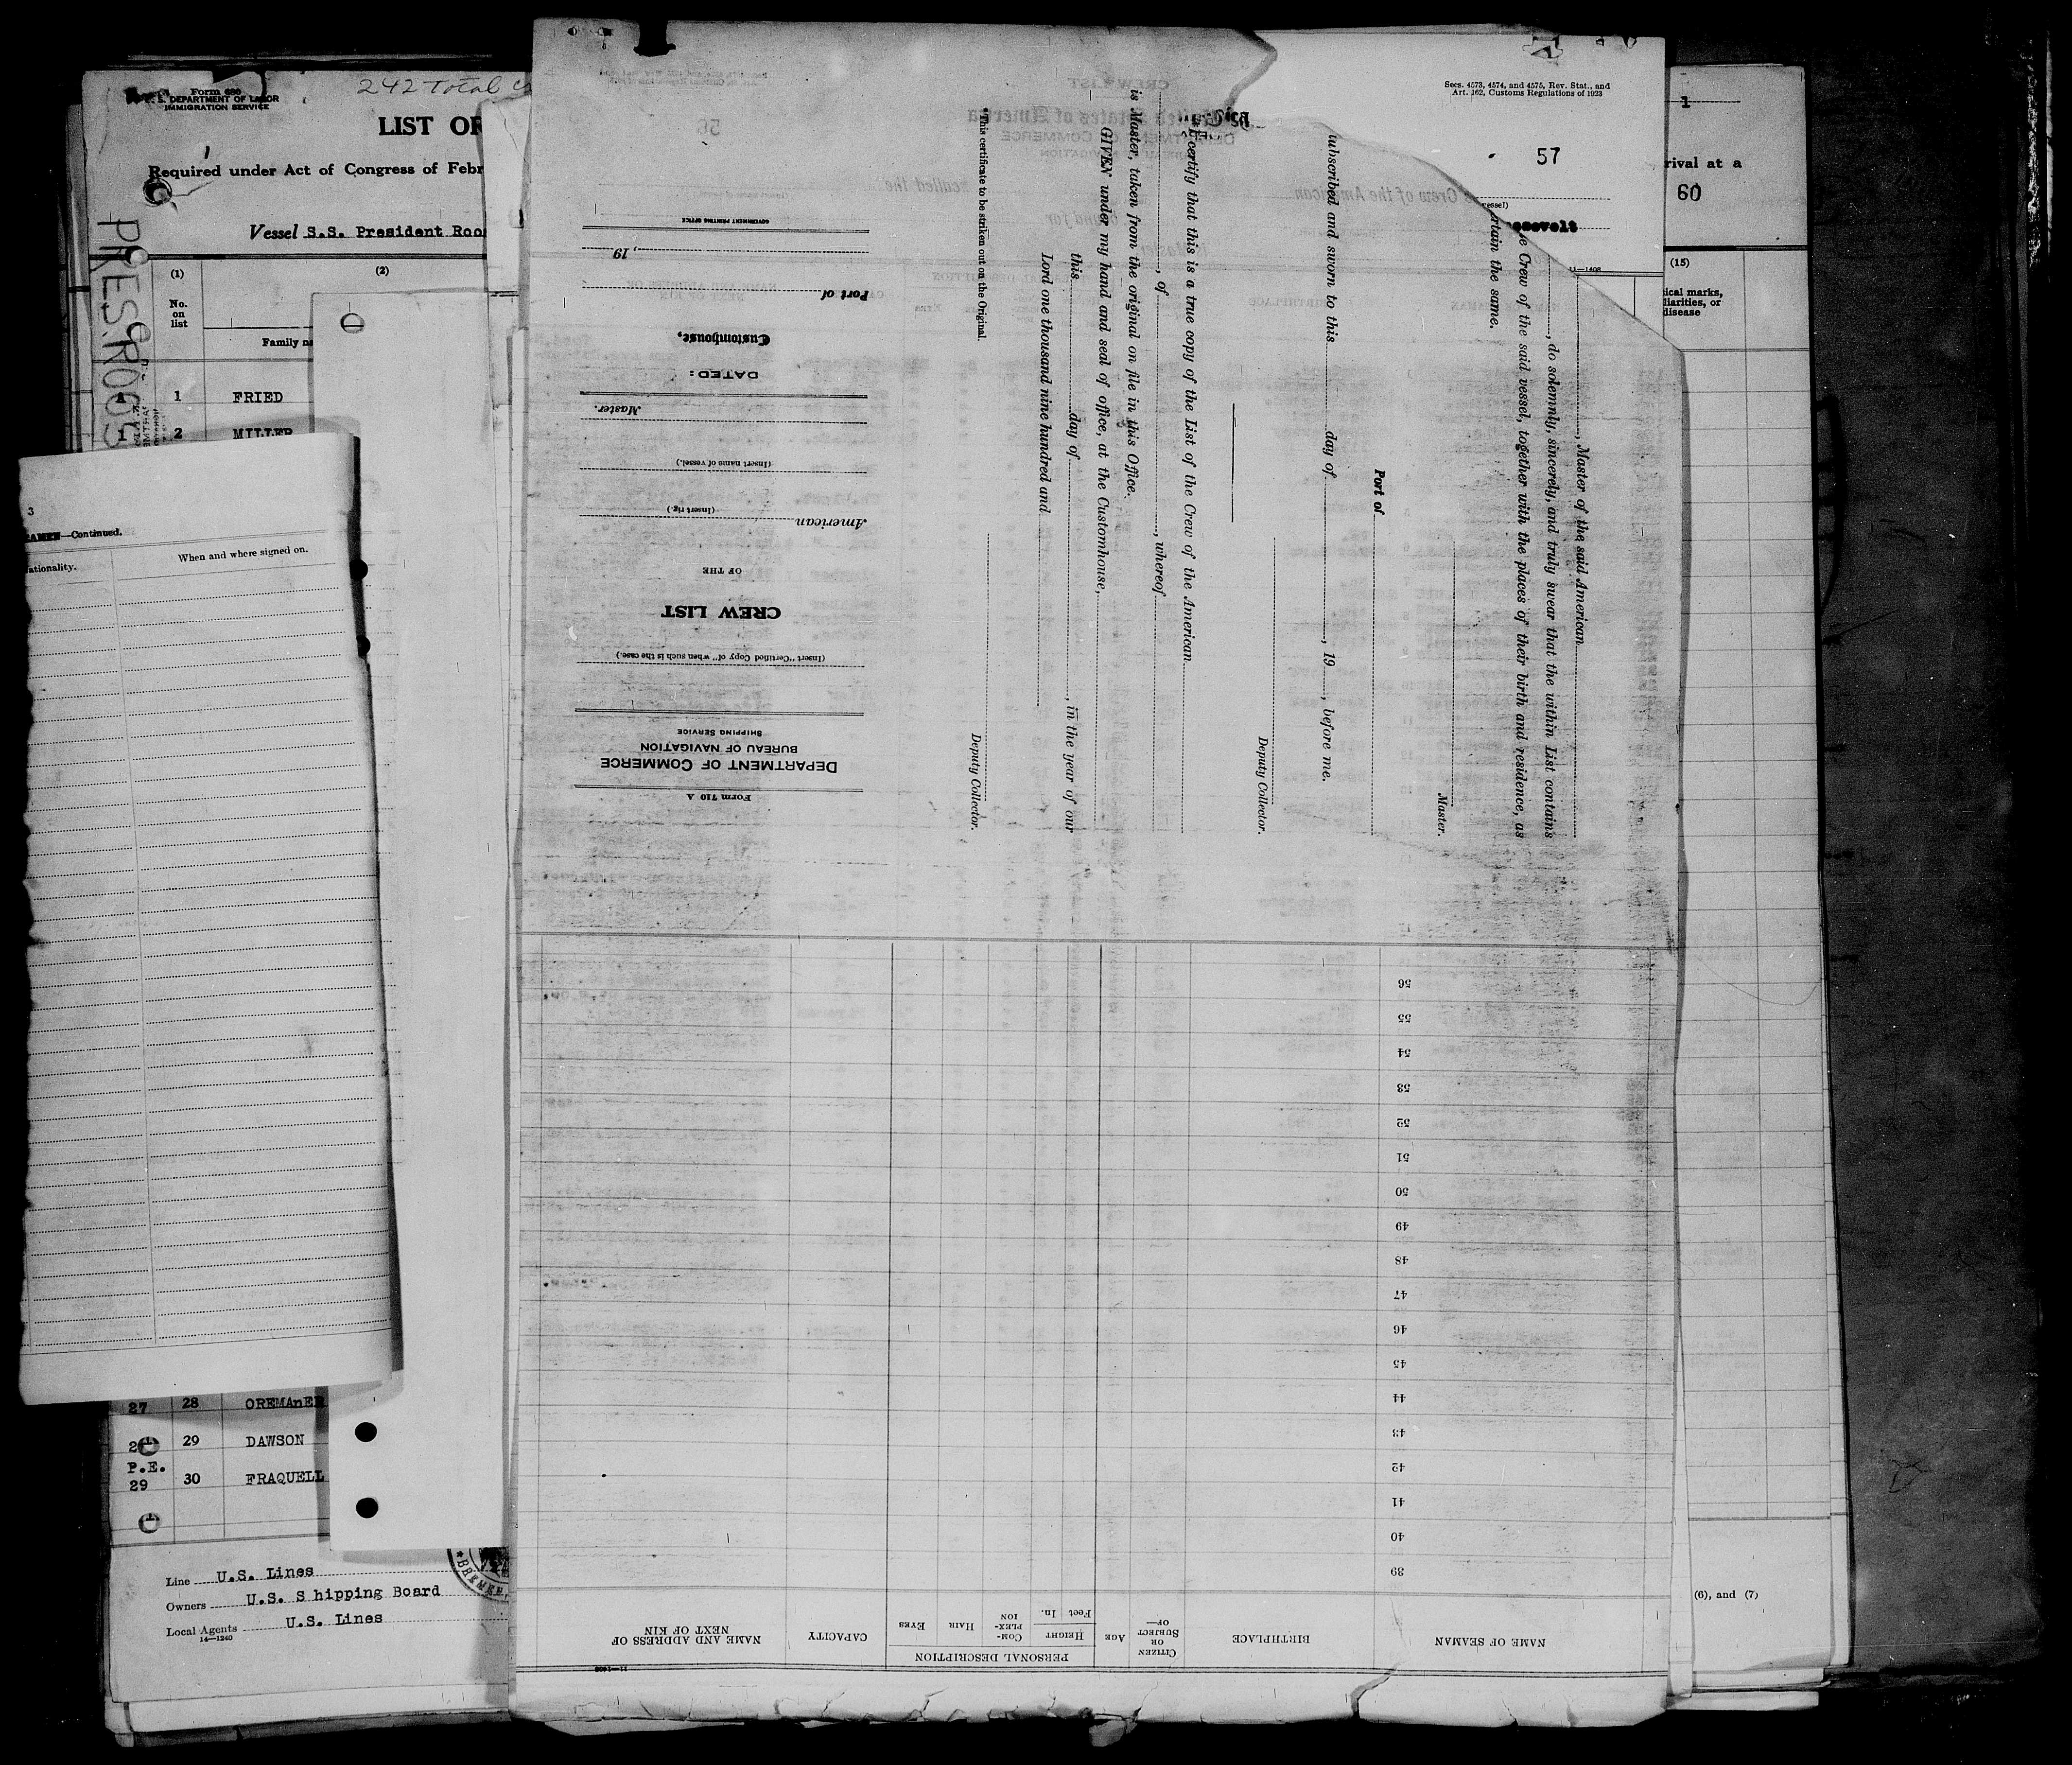 Form 680
U. S. DEPARTMENT OF LABOR
IMMIGRATION SERVICE
242 Total
LIST OF
Required under Act of Congress of Febr
Vessel S.S. President Roos
PRES. ROOS
(1)
(2)
No.
on
list
Family na
1 FRIED
2 MILLER
3
—Continued.
ationality.
When and where signed on.
27 28 OREMAnER
29 DAWSON
P.E.
29 30 FRAQUELL
Line U.S. Lines
Owners U.S. S hipping Board
Local Agents U.S. Lines
14—1240
BREMEN
Secs. 4573, 4574, and 4575, Rev. Stat., and
Art. 162, Customs Regulations of 1923
57
oosevelt
11—1408
1
rival at a
60
(15)
ical marks,
liarities, or
disease
(6), and (7)
Form 710 A
DEPARTMENT OF COMMERCE
BUREAU OF NAVIGATION
SHIPPING SERVICE
(Insert "Certified Copy of" when such is the case.)
CREW LIST
OF THE
American
(Insert rig.)
(Insert name of vessel.)
Master.
DATED:
Customhouse,
Port of
, 19
GOVERNMENT PRINTING OFFICE
, Master of the said American
, do solemnly, sincerely, and truly swear that the within List contains
e Crew of the said vessel, together with the places of their birth and residence, as
rtain the same.
Master.
Port of
Subscribed and sworn to this day of , 19 , before me.
Deputy Collector.
certify that this is a true copy of the List of the Crew of the American
, of , whereof
is Master, taken from the original on file in this Office.
GIVEN under my hand and seal of office, at the Customhouse,
this day of , in the year of our
Lord one thousand nine hundred and
Deputy Collector.
*This certificate to be striken out on the Original.
NAME OF SEAMAN
BIRTHPLACE
CITIZEN
OR
SUBJECT
OF—
AGE
PERSONAL DESCRIPTION
HEIGHT
Feet In.
COM-
PLEX-
ION
HAIR
EYES
CAPACITY
NAME AND ADDRESS OF
NEXT OF KIN
11—1408
39
40
41
42
43
44
45
46
47
48
49
50
51
52
53
54
55
56